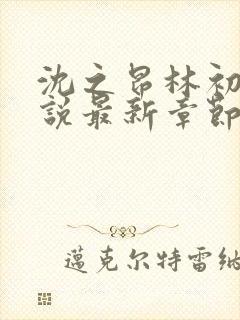 沈之昂林初
說最新章節
邁克尔特雷纳